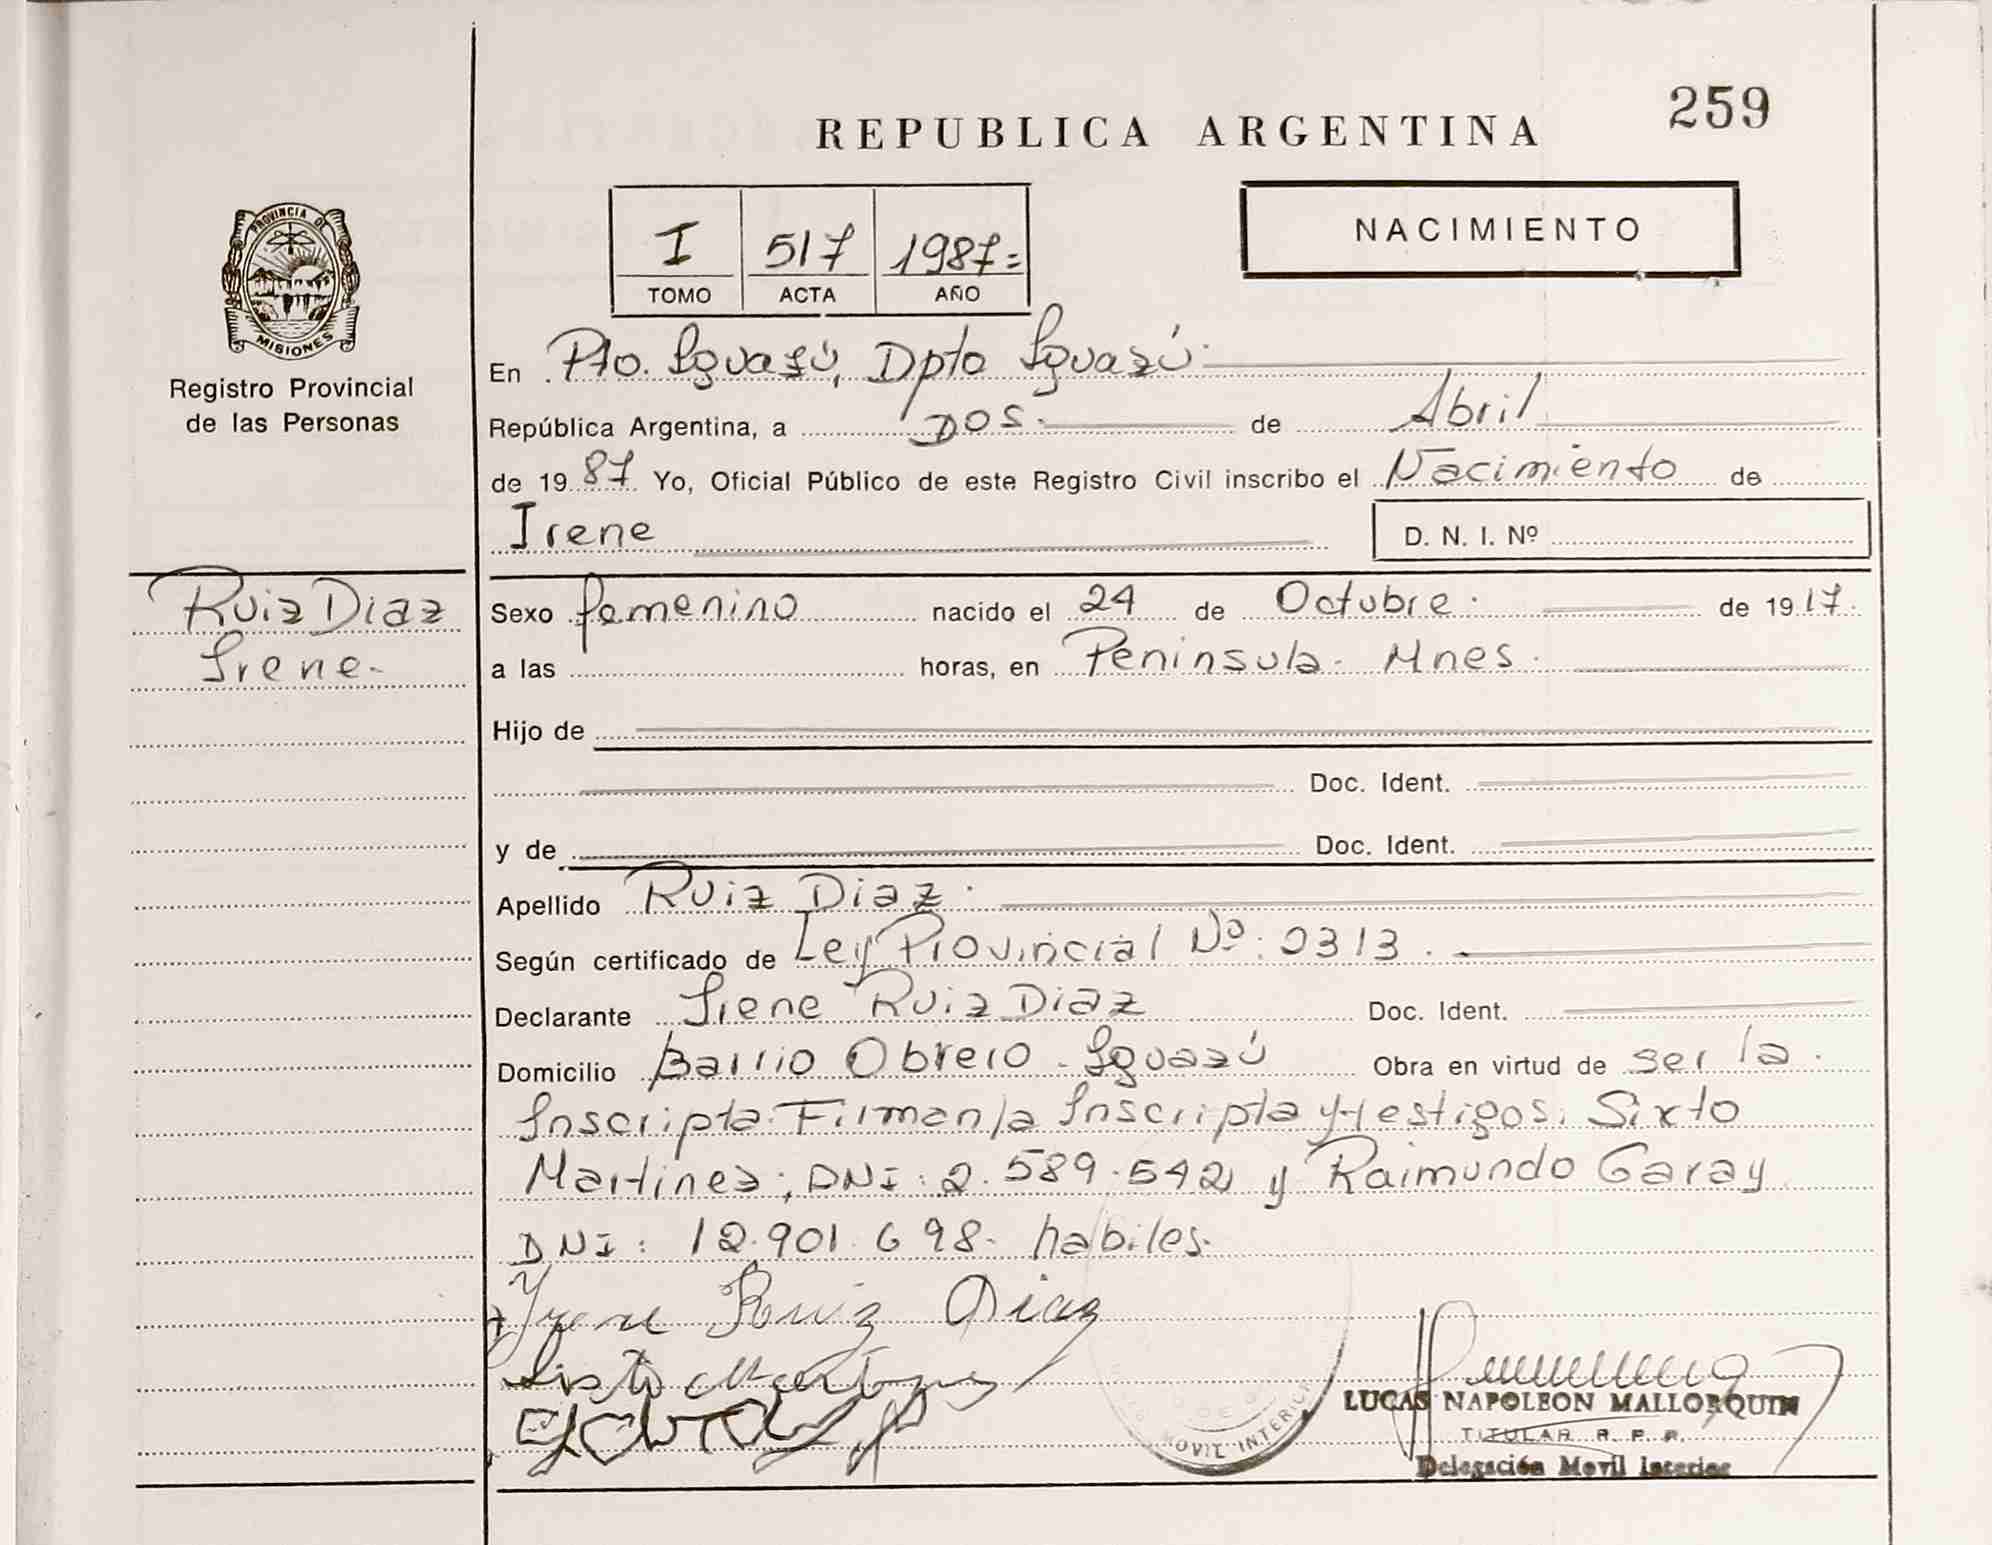 259
REPUBLICA ARGENTINA
I 517 1987=
TOMO ACTA AÑO
NACIMIENTO
PROVINCIA DE
MISIONES
Registro Provincial
de las Personas
En Pto. Iguazú, Dpto Iguazú.
República Argentina, a DOS. de Abril
de 1987. Yo, Oficial Público de este Registro Civil inscribo el Nacimiento de
Irene
D. N. I. Nº
Ruiz Diaz
Irene.
Sexo femenino nacido el 24 de Octubre. de 1917.
a las horas, en Peninsula. Mnes.
Hijo de
Doc. Ident.
y de Doc. Ident.
Apellido Ruiz Diaz.
Según certificado de Ley Provincial Nº: 2313.
Declarante Irene Ruiz Diaz Doc. Ident.
Domicilio Barrio Obrero - Iguazú Obra en virtud de ser la
Inscripta. Firman la Inscripta y testigos. Sixto
Martinez; DNI: 2.589.542 y Raimundo Garay
DNI: 12.901.698. habiles.
Yrene Ruiz Diaz
Sisto Martines
MOVIL INTERIOR
LUCAS NAPOLEON MALLORQUIN
TITULAR R. P. P.
Delegación Movil Interior